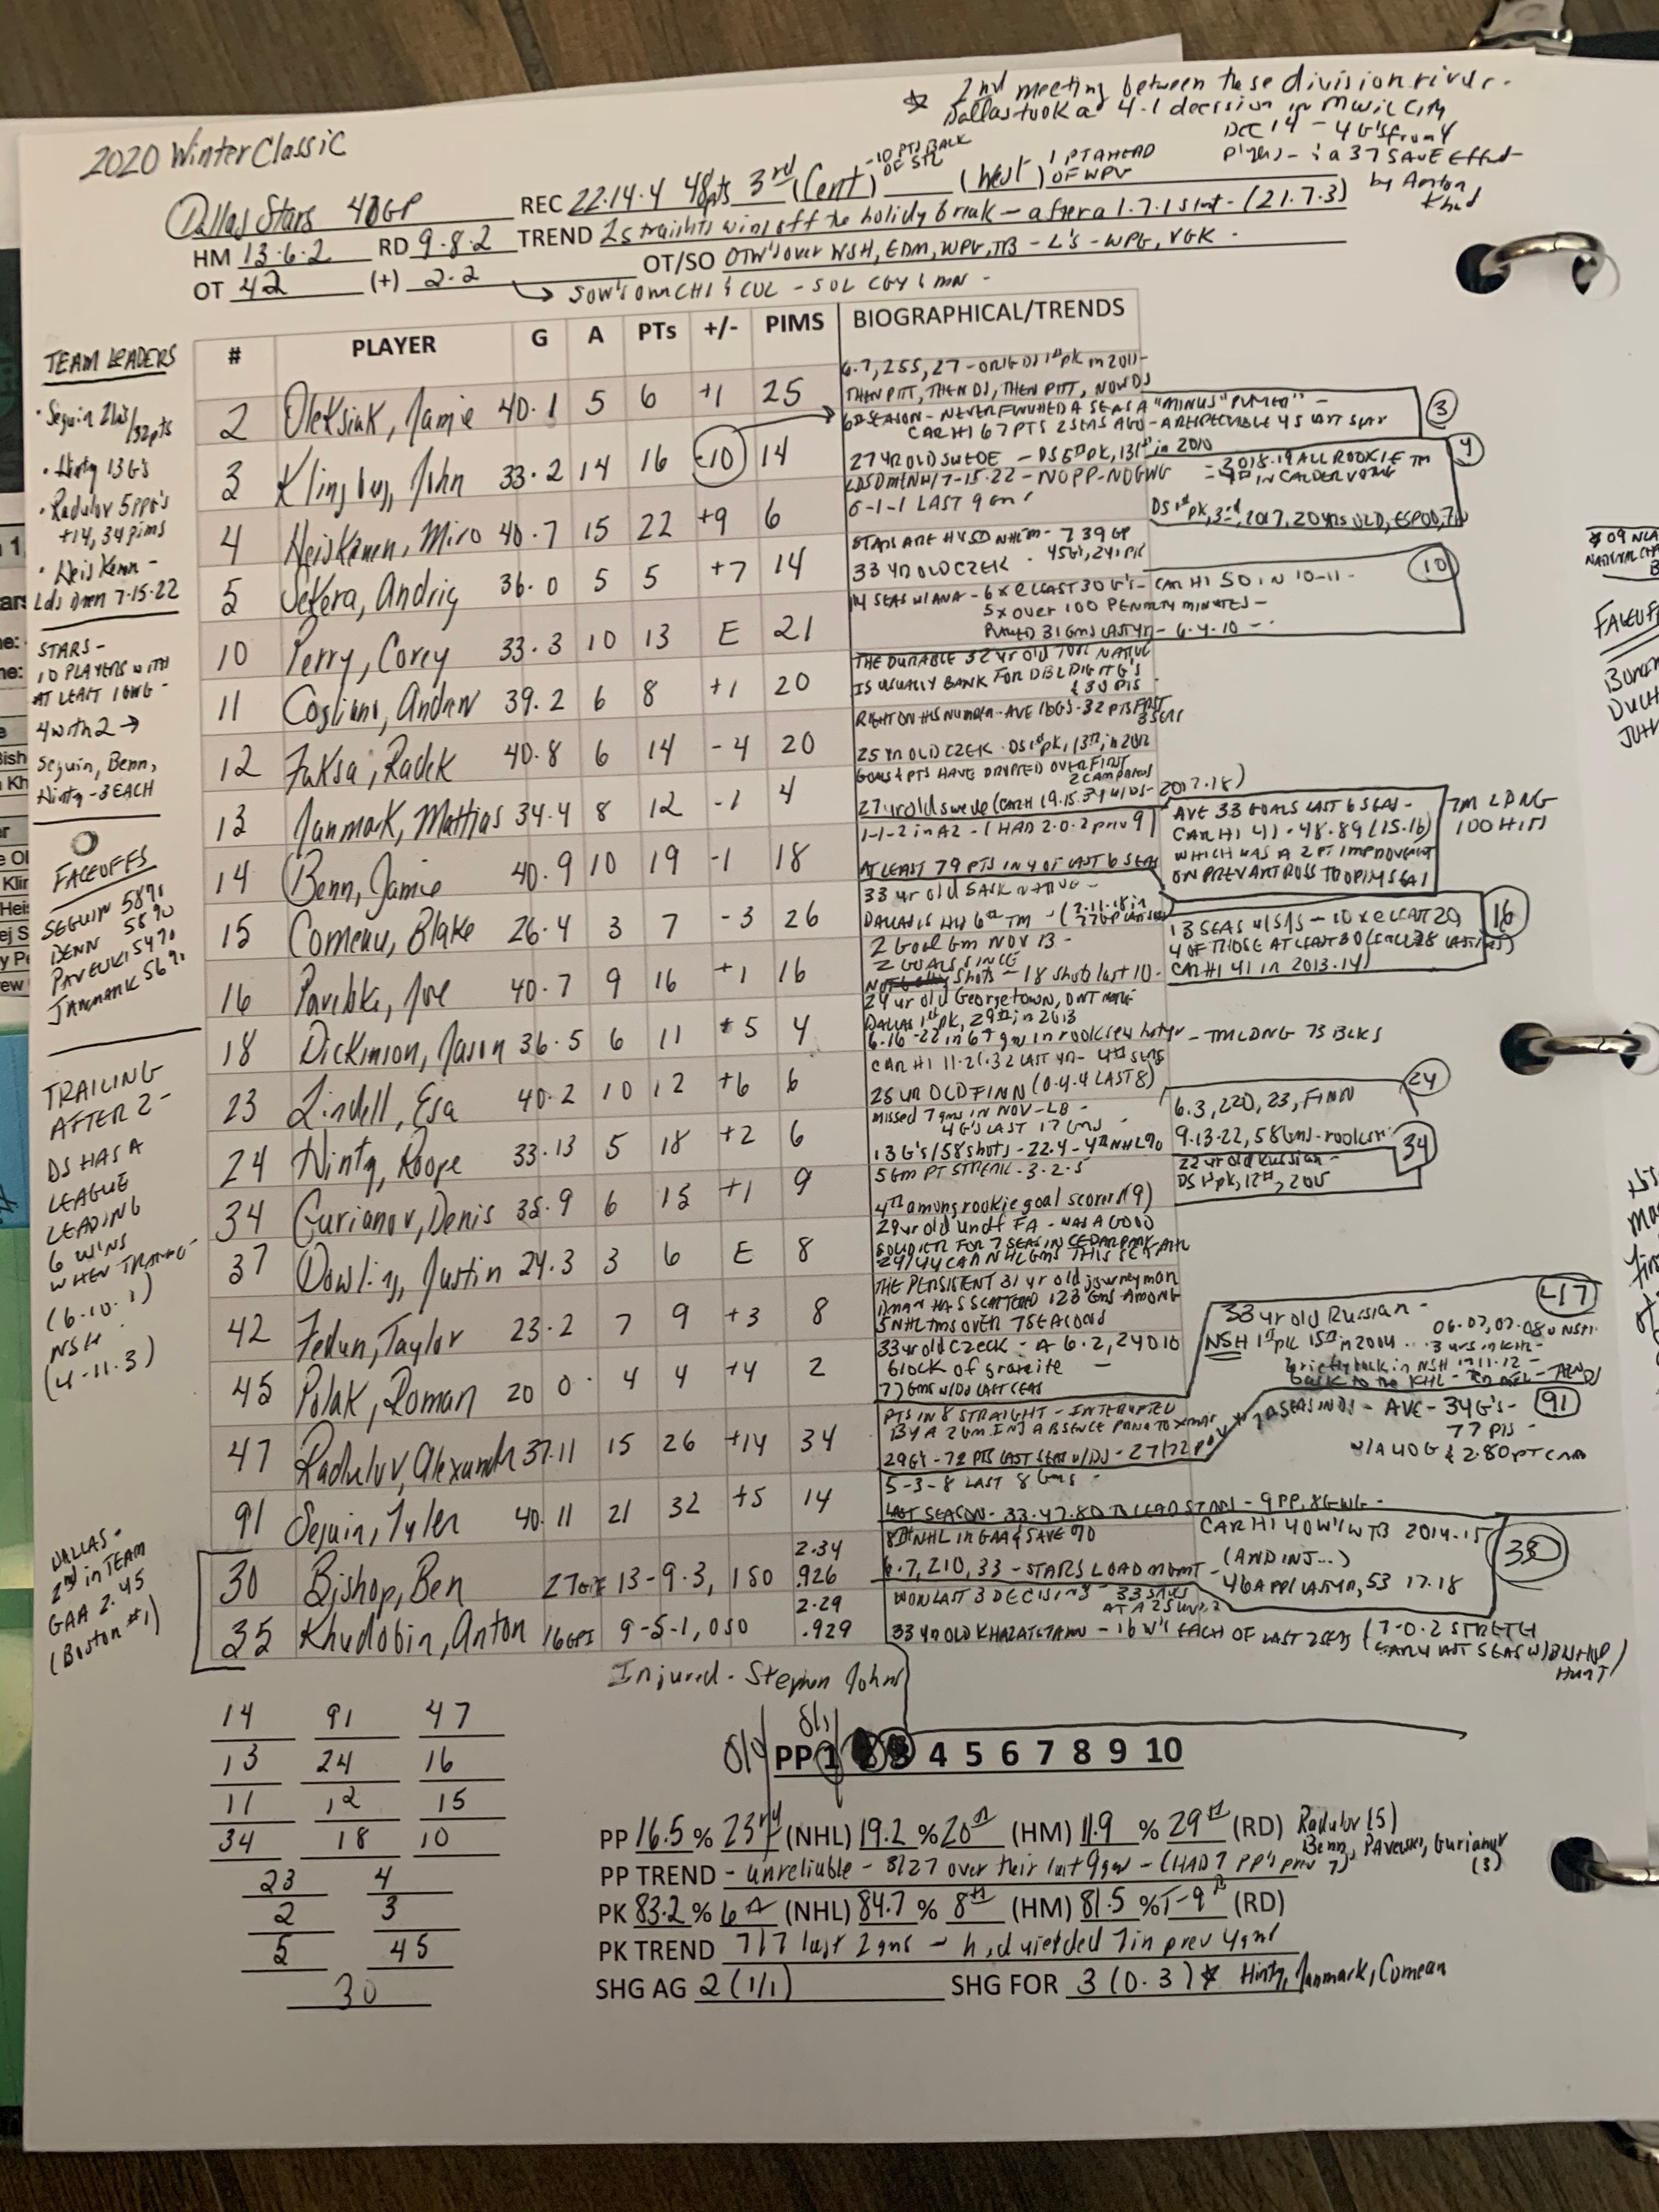 2020 Winter Classic
* 2nd meeting between these division
Dallas took a 4-1 decision in Music City
DEC 14 - 4 G's from 4
players - & a 37 SAVE effort
by Anton
Khud
Dallas Stars 40GP
REC 22.14.4 48pts 3rd (Cent) (West)
-10 PTS BACK
OF STL
1 PT AHEAD
OF WPG
HM 13.6.2 RD 9.8.2 TREND 2 straights wins off the holidy break - after a 1.7.1 start - (21.7.3)
OT 42 (+) 2-2 OT/SO OTW's over WSH, EDM, WPG, TB - L's - WPG, VGK -
SOW's CHI & COL - SOL CGY & MN -
# PLAYER G A PTs +/- PIMS BIOGRAPHICAL/TRENDS
2 Oleksiak, Jamie 40.1 5 6 +1 25
6.7, 255, 27 - ORIG DS 1st pk in 2011 -
THEN PITT, THEN DS, THEN PITT, NOW DS
3 Klingberg, John 33.2 14 16 -10 14
6th SEASON - NEVER FINISHED A SEAS A "MINUS" PLAYER" -
CAR HI 67 PTS 2 SEAS AGO - A RESPECTABLE 45 LAST SEAS
3
27 YR OLD SWEDE - DS 5th pk, 131st in 2010
4 Heiskanen, Miro 40.7 15 22 +9 6
LDS DMEN W/ 7-15-22 - NO PP - NO GWG
- 2018.19 ALL ROOKIE TM
- 4th IN CALDER VOTING
4
6-1-1 LAST 9 Gms
DS 1st pk, 3rd, 2017, 20 yrs OLD, ESPOO,
5 Sekera, Andrig 36.0 5 5 +7 14
STARS ARE HIS 5th NHL TM - 739 GP
33 YR OLD CZEK
10 Perry, Corey 33.3 10 13 E 21
14 SEAS W/ ANA - 6 x @ LEAST 30 G's - CAR HI 50 IN 10-11 -
5 x over 100 PENALTY MINUTES -
PLAYED 31 Gms LAST YR - 6.4.10 -
10
11 Cogliano, Andrew 39.2 6 8 +1 20
THE DURABLE 32 yr old TOR NATIVE
IS USUALLY BANK FOR DBL DIGIT G'S
& 30 PTS
12 Faksa, Radek 40.8 6 14 -4 20
RIGHT ON HIS NUMBER - AVE 16 GS - 32 PTS PAST
3 SEAS
25 YR OLD CZEK - DS 1st pk, 13th, in 2012
13 Janmark, Mattias 34.4 8 12 -1 4
GOALS & PTS HAVE DROPPED OVER FIRST
2 CAMPAIGNS
27 yr old swede (CAR HI 19.15.34 w/ DS - 2017.18)
14 Benn, Jamie 40.9 10 19 -1 18
1-1-2 in A2 - (HAD 2.0.2 prev 9)
AT LEAST 79 PTS IN 4 OF LAST 6 SEAS
AVE 33 GOALS LAST 6 SEAS -
CAR HI 41-48-89 (15-16)
WHICH WAS A 2 PT IMPROVEMENT
ON PREV ART ROSS TROPHY SEAS
TM LDNG
100 HITS
15 Comeau, Blake 26.4 3 7 -3 26
33 yr old SASK NATIVE -
DALLAS IS HIS 6th TM
16 Pavelski, Joe 40.7 9 16 +1 16
2 Goal Gm NOV 13 -
2 GOALS SINCE
shots - 18 shots last 10 -
13 SEAS w/ SJS - 10 x @ LEAST 20
4 OF THOSE AT LEAST 30
CAR HI 41 in 2013.14)
16
18 Dickinson, Jason 36.5 6 11 +5 4
24 yr old Georgetown, ONT NATIVE
DALLAS 1st pk, 29th in 2013
6.16-22 in 67 gms in rook seas last yr
23 Lindell, Esa 40.2 10 12 +6 6
- TM LDNG 73 BLKS
CAR HI 11-21.32 LAST YR - 4th SEAS
25 YR OLD FINN (0.4.4 LAST 8)
24 Hintz, Roope 33.13 5 18 +2 6
missed 7 gms IN NOV - LB -
4 G's LAST 17 Gms -
13 G's/58 shots - 22.4 - 4th NHL %
6.3, 220, 23, FINN
9.13-22, 58 Gms - rook
24
34 Gurianov, Denis 35.9 6 15 +1 9
5 Gm PT STREAK - 3.2.5
4th among rookie goal scorers (9)
22 yr old Russian -
DS 1st pk, 12th, 2015
34
37 Dowling, Justin 24.3 3 6 E 8
29 yr old undf FA - WAS A GOOD
SOLDIER FOR 7 SEAS IN CEDAR PARK
42 Fedun, Taylor 23.2 7 9 +3 8
THE PERSISTENT 31 yr old journeyman
DMAN HAS SCATTERED 123 Gms AMONG
5 NHL TMS OVER 7 SEASONS
45 Polak, Roman 20 0 4 4 +4 2
33 yr old Czeck - A 6.2, 240 lb
block of granite -
77 Gms w/ DS LAST SEAS
47 Radulov, Alexander 37.11 15 26 +14 34
PTS IN 8 STRAIGHT - INTERRUPTED
BY A 2 GM INJ ABSENCE PRIOR TO xmas
29 G's - 72 PTS LAST SEAS w/ DS - 27/72 prev yr
33 yr old Russian -
NSH 1st pk 15th in 2004 06.07, 07.08 w NSH
... 3 yrs in KHL -
briefly back in NSH in 11.12 -
back to the KHL -
47
91 Seguin, Tyler 40.11 21 32 +5 14
5-3-8 LAST 8 Gms -
LAST SEASON - 33.47.80 TO LEAD STARS - 9 PP, 8 GWG -
AVE - 34 G's -
77 pts -
91
30 Bishop, Ben 27 GPI 13-9-3, 1 SO 2.34 .926
8th NHL in GAA & SAVE %
6.7, 210, 33 - STARS LOAD MGMT -
CAR HI 40 W's w TB 2014-15
(AND INJ...)
46 APP LAST YR, 53 17.18
35 Khudobin, Anton 16 GPI 9-5-1, 0 SO 2.29 .929
WON LAST 3 DECISIONS - 33 SAVES
33 YR OLD KHAZAKSTANN - 16 W's EACH OF LAST 2 SEAS (7-0.2 STRETCH
Injured - Stephen Johns
TEAM LEADERS
• Seguin 21 as/32pts
• Hintz 13 G's
• Radulov 5 ppg's
+14, 34 pims
• Heiskenn -
Lds Dmn 7-15-22
STARS -
10 PLAYERS WITH
AT LEAST 1 GWG -
4 with 2 →
Seguin, Benn,
Hintz - 3 EACH
FACEOFFS
SEGUIN 58%
BENN 58%
PAVELSKI 54%
JANMARK 56%
TRAILING
AFTER 2 -
DS HAS A
LEAGUE
LEADING
6 WINS
WHEN TRAILING
(6.10.1)
NSH
(4-11.3)
DALLAS -
2nd in TEAM
GAA 2.45
(Boston #1)
14 91 47
13 24 16
11 12 15
34 18 10
23 4
2 3
5 45
30
PP 1 4 5 6 7 8 9 10
PP 16.5 % 23rd (NHL) 19.2 % 20th (HM) 11.9 % 29th (RD) Radulov (5)
Benn, Pavelski, Gurianov
(3)
PP TREND - unreliable - 8/27 over their last 9 gms - (HAD 7 PP's prev 7)
PK 83.2 % 6th (NHL) 84.7 % 8th (HM) 81.5 % T-9th (RD)
PK TREND 7/7 last 2 gms - had yielded 7 in prev 4 gms
SHG AG 2 (1/1) SHG FOR 3 (0.3) * Hintz, Janmark, Comeau